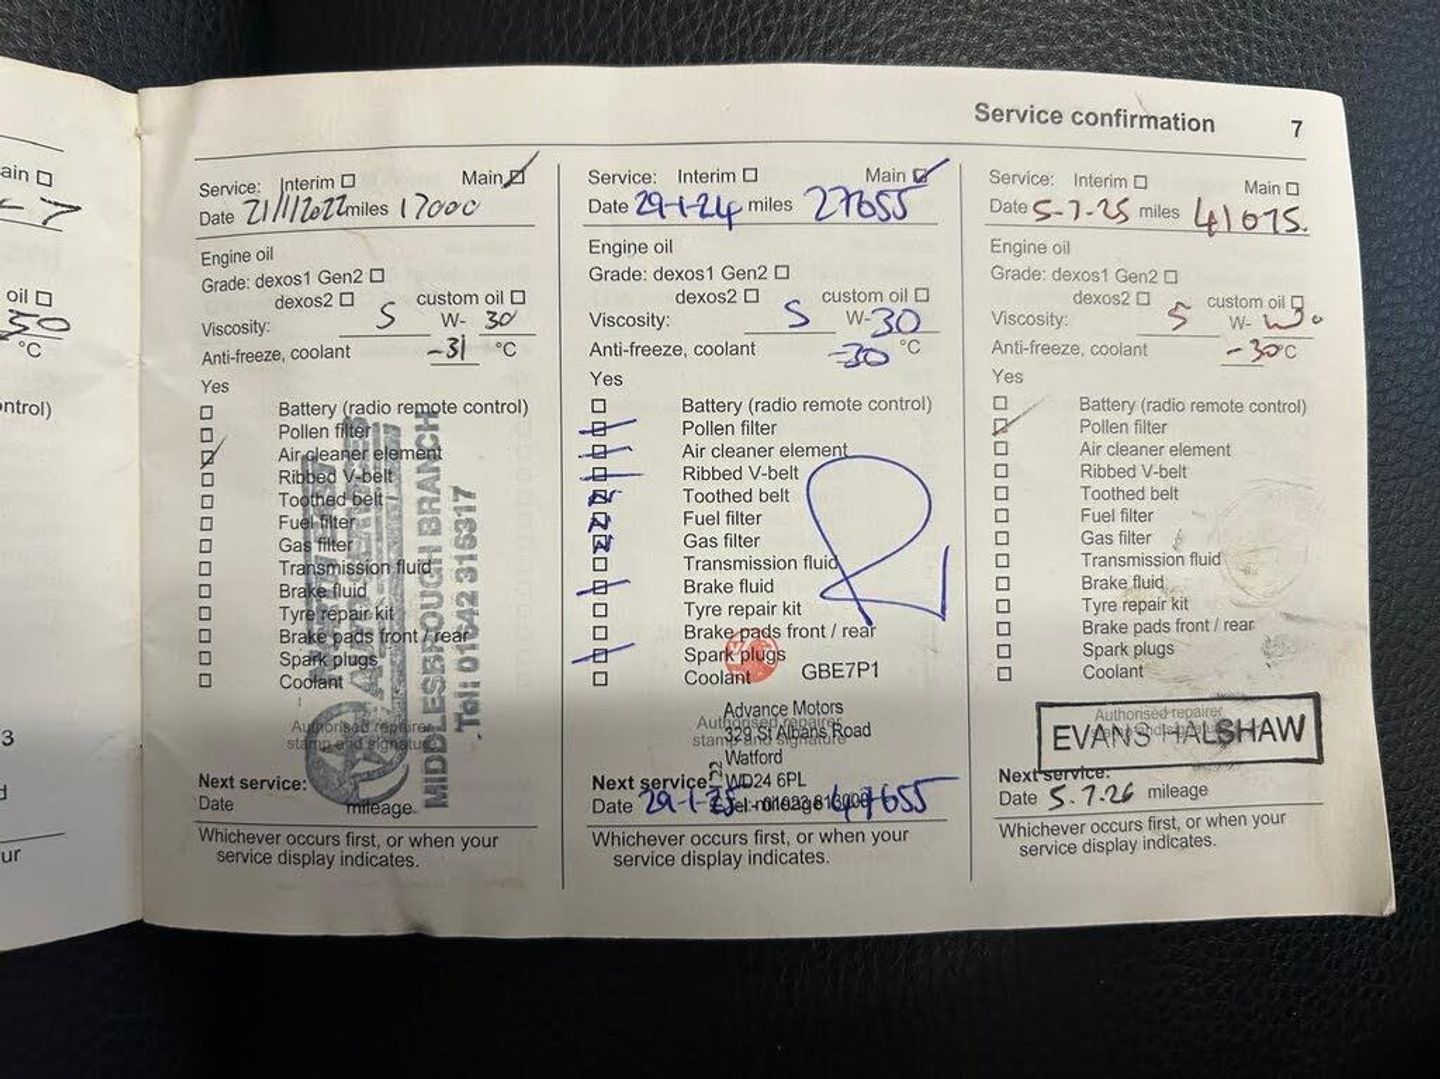 Service confirmation 7
ain
- 7
oil
30
°C
ntrol)
3
d
ur
Service: Interim Main
Date 21/1/2022 miles 17000
Engine oil
Grade: dexos1 Gen2
dexos2 custom oil
Viscosity: 5 W- 30
Anti-freeze, coolant -31 °C
Yes
Battery (radio remote control)
Pollen filter
Air cleaner element
Ribbed V-belt
Toothed belt
Fuel filter
Gas filter
Transmission fluid
Brake fluid
Tyre repair kit
Brake pads front / rear
Spark plugs
Coolant
Authorised repairer
stamp and signature
AUTO SERVICES
MIDDLESBROUGH BRANCH
Tel: 01642 316317
Next service:
Date mileage
Whichever occurs first, or when your
service display indicates.
Service: Interim Main
Date 29-1-24 miles 27655
Engine oil
Grade: dexos1 Gen2
dexos2 custom oil
Viscosity: 5 W-30
Anti-freeze, coolant -30 °C
Yes
Battery (radio remote control)
Pollen filter
Air cleaner element
Ribbed V-belt
Toothed belt
Fuel filter
Gas filter
Transmission fluid
Brake fluid
Tyre repair kit
Brake pads front / rear
Spark plugs
Coolant GBE7P1
Advance Motors
Authorised repairer
329 St Albans Road
stamp and signature
Watford
WD24 6PL
Next service:
Tel:- 01923
Date 29-1-25 mileage 47655
Whichever occurs first, or when your
service display indicates.
Service: Interim Main
Date 5-7-25 miles 41075.
Engine oil
Grade: dexos1 Gen2
dexos2 custom oil
Viscosity: 5 W- W30
Anti-freeze, coolant -30°C
Yes
Battery (radio remote control)
Pollen filter
Air cleaner element
Ribbed V-belt
Toothed belt
Fuel filter
Gas filter
Transmission fluid
Brake fluid
Tyre repair kit
Brake pads front / rear
Spark plugs
Coolant
Authorised repairer
EVANS HALSHAW
Next service:
Date 5.7.26 mileage
Whichever occurs first, or when your
service display indicates.